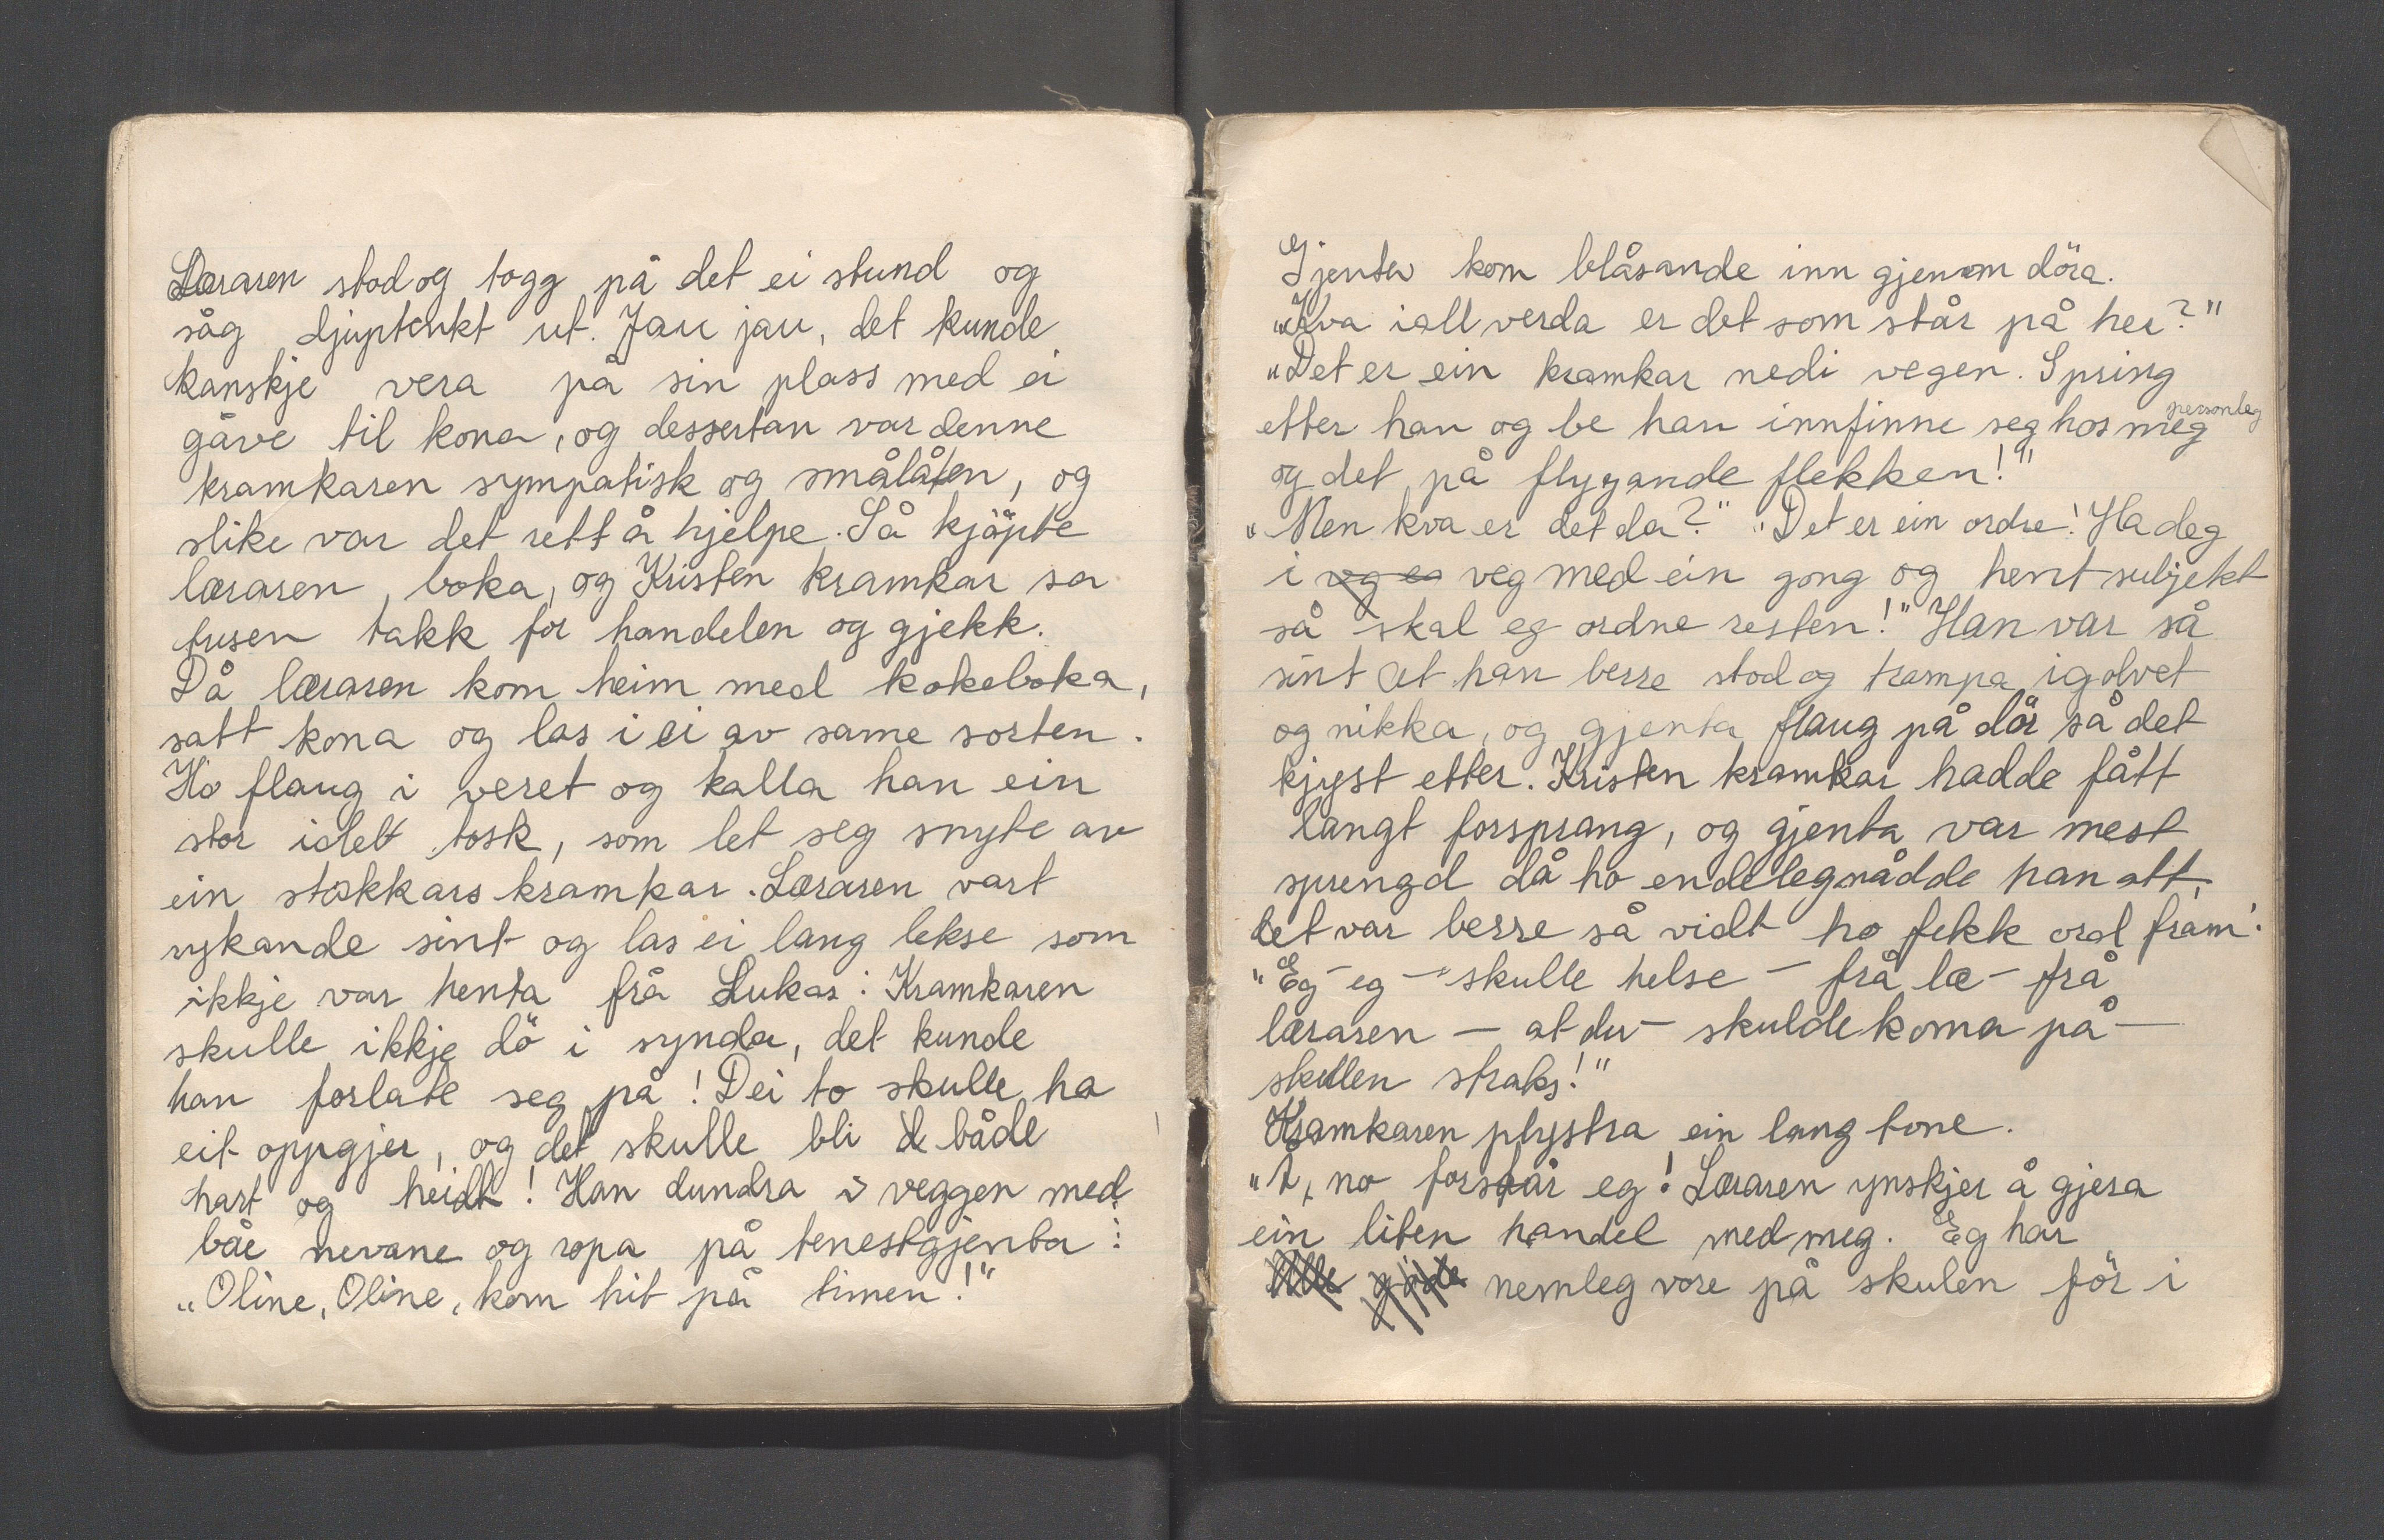 Læraren stod og togg på det ei stund og
såg djuptenkt ut. Jau jau, det kunde
kanskje vera på sin plass med ei
gåve til kona, og dessertan var denne
kramkaren sympatisk og smålåten, og
slike var det rett å hjelpe. Så kjöpte
læraren boka, og Kristen kramkar sa
tusen takk for handelen og gjekk.
Då læraren kom heim med kokeboka,
satt kona og las i ei av same sorten.
Ho flaug i veret og kalla han ein
stor idelt tosk, som let seg snyte av
ein stakkars kramkar. Læraren vart
rykande sint og las ei lang lekse som
ikkje var henta frå Lukas: Kramkaren
skulle ikkje dö i synda, det kunde
han forlate seg på! Dei to skulle ha
eit oppgjer, og det skulle bli både
hart og heidt! Han dundra i veggen med
båe nevane og ropa på tenestgjenta:
„Oline, Oline, kom hit på timen!"
Gjenta kom blåsande inn gjenom döra.
„Kva i all verda er det som står på her?"
„Det er ein kramkar nedi vegen. Spring
etter han og be han innfinne seg hos meg personleg
og det på flygande flekken!"
„Men kva er det da?" „Det er ein ordre! Ha deg
i og es veg med ein gong og hent subjekt
så skal eg ordne resten!" Han var så
sint at han berre stod og trampa i golvet
og nikka, og gjenta flaug på dör så det
kjyst etter. Kristen kramkar hadde fått
langt forsprang, og gjenta var mest
sprengd då ho endeleg nådde han att,
det var berre så vidt ho fekk ord fram:
„Eg - eg - skulle helse - frå læ - frå
læraren — at du - skulde koma på —
skulen straks!"
Kramkaren plystra ein lang tone.
„Å, no forstår eg! Læraren ynskjer å gjera
ein liten handel med meg. Eg har
nemleg vore på skulen för i